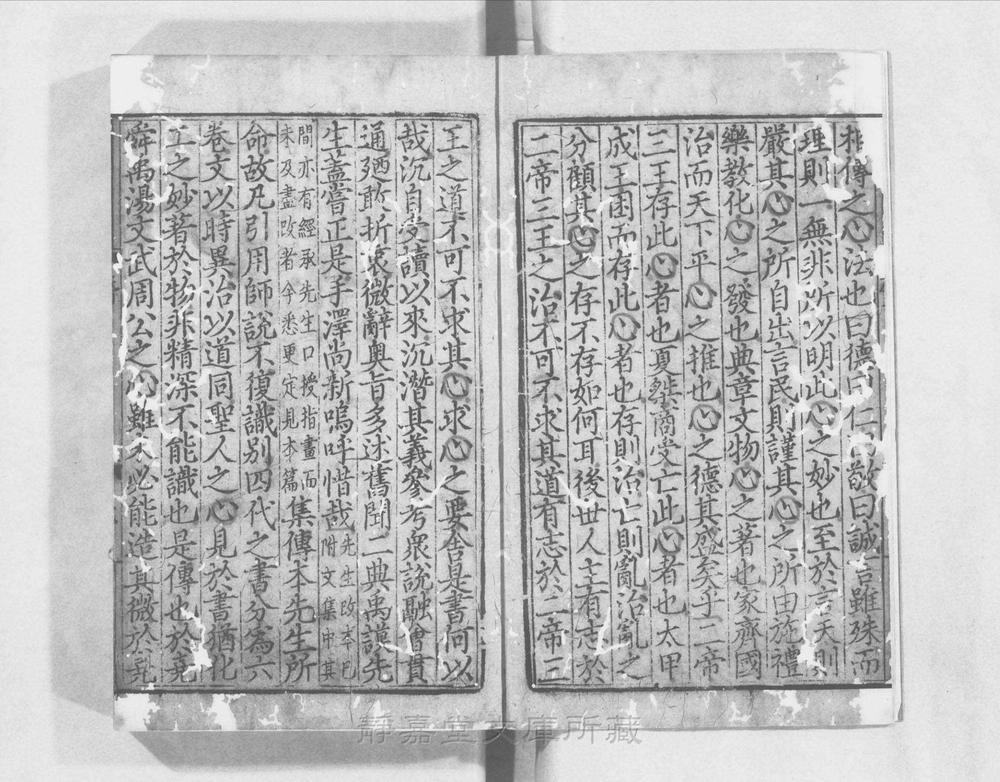 相傳之心法也曰德曰仁曰敬曰誠言雖殊而
理則一無非所以明此心之妙也至於言天則
嚴其心之所自出言民則謹其心之所由施禮
樂教化心之發也典章文物心之著也家齊國
治而天下平心之推也心之德其盛矣乎二帝
三王存此心者也夏桀商受亡此心者也太甲
成王困而存此心者也存則治亡則亂治亂之
分顧其心之存不存如何耳後世人主有志於
二帝三王之治不可不求其道有志於二帝三
王之道不可不求其心求心之要舍是書何以
哉沉自受讀以來沉潛其義參考衆說融會貫
通廼敢折衷微辭奧旨多述舊聞二典禹謨先
生蓋嘗正是手澤尚新嗚呼惜哉先生改本已附文集中其
間亦有經承先生口授指畫而未及盡改者今悉更定見本篇集傳本先生所
命故凡引用師說不復識别四代之書分爲六
卷文以時異治以道同聖人之心見於書猶化
工之妙著於物非精深不能識也是傳也於堯
舜禹湯文武周公之心雖未必能造其微於堯
靜嘉堂文庫所藏